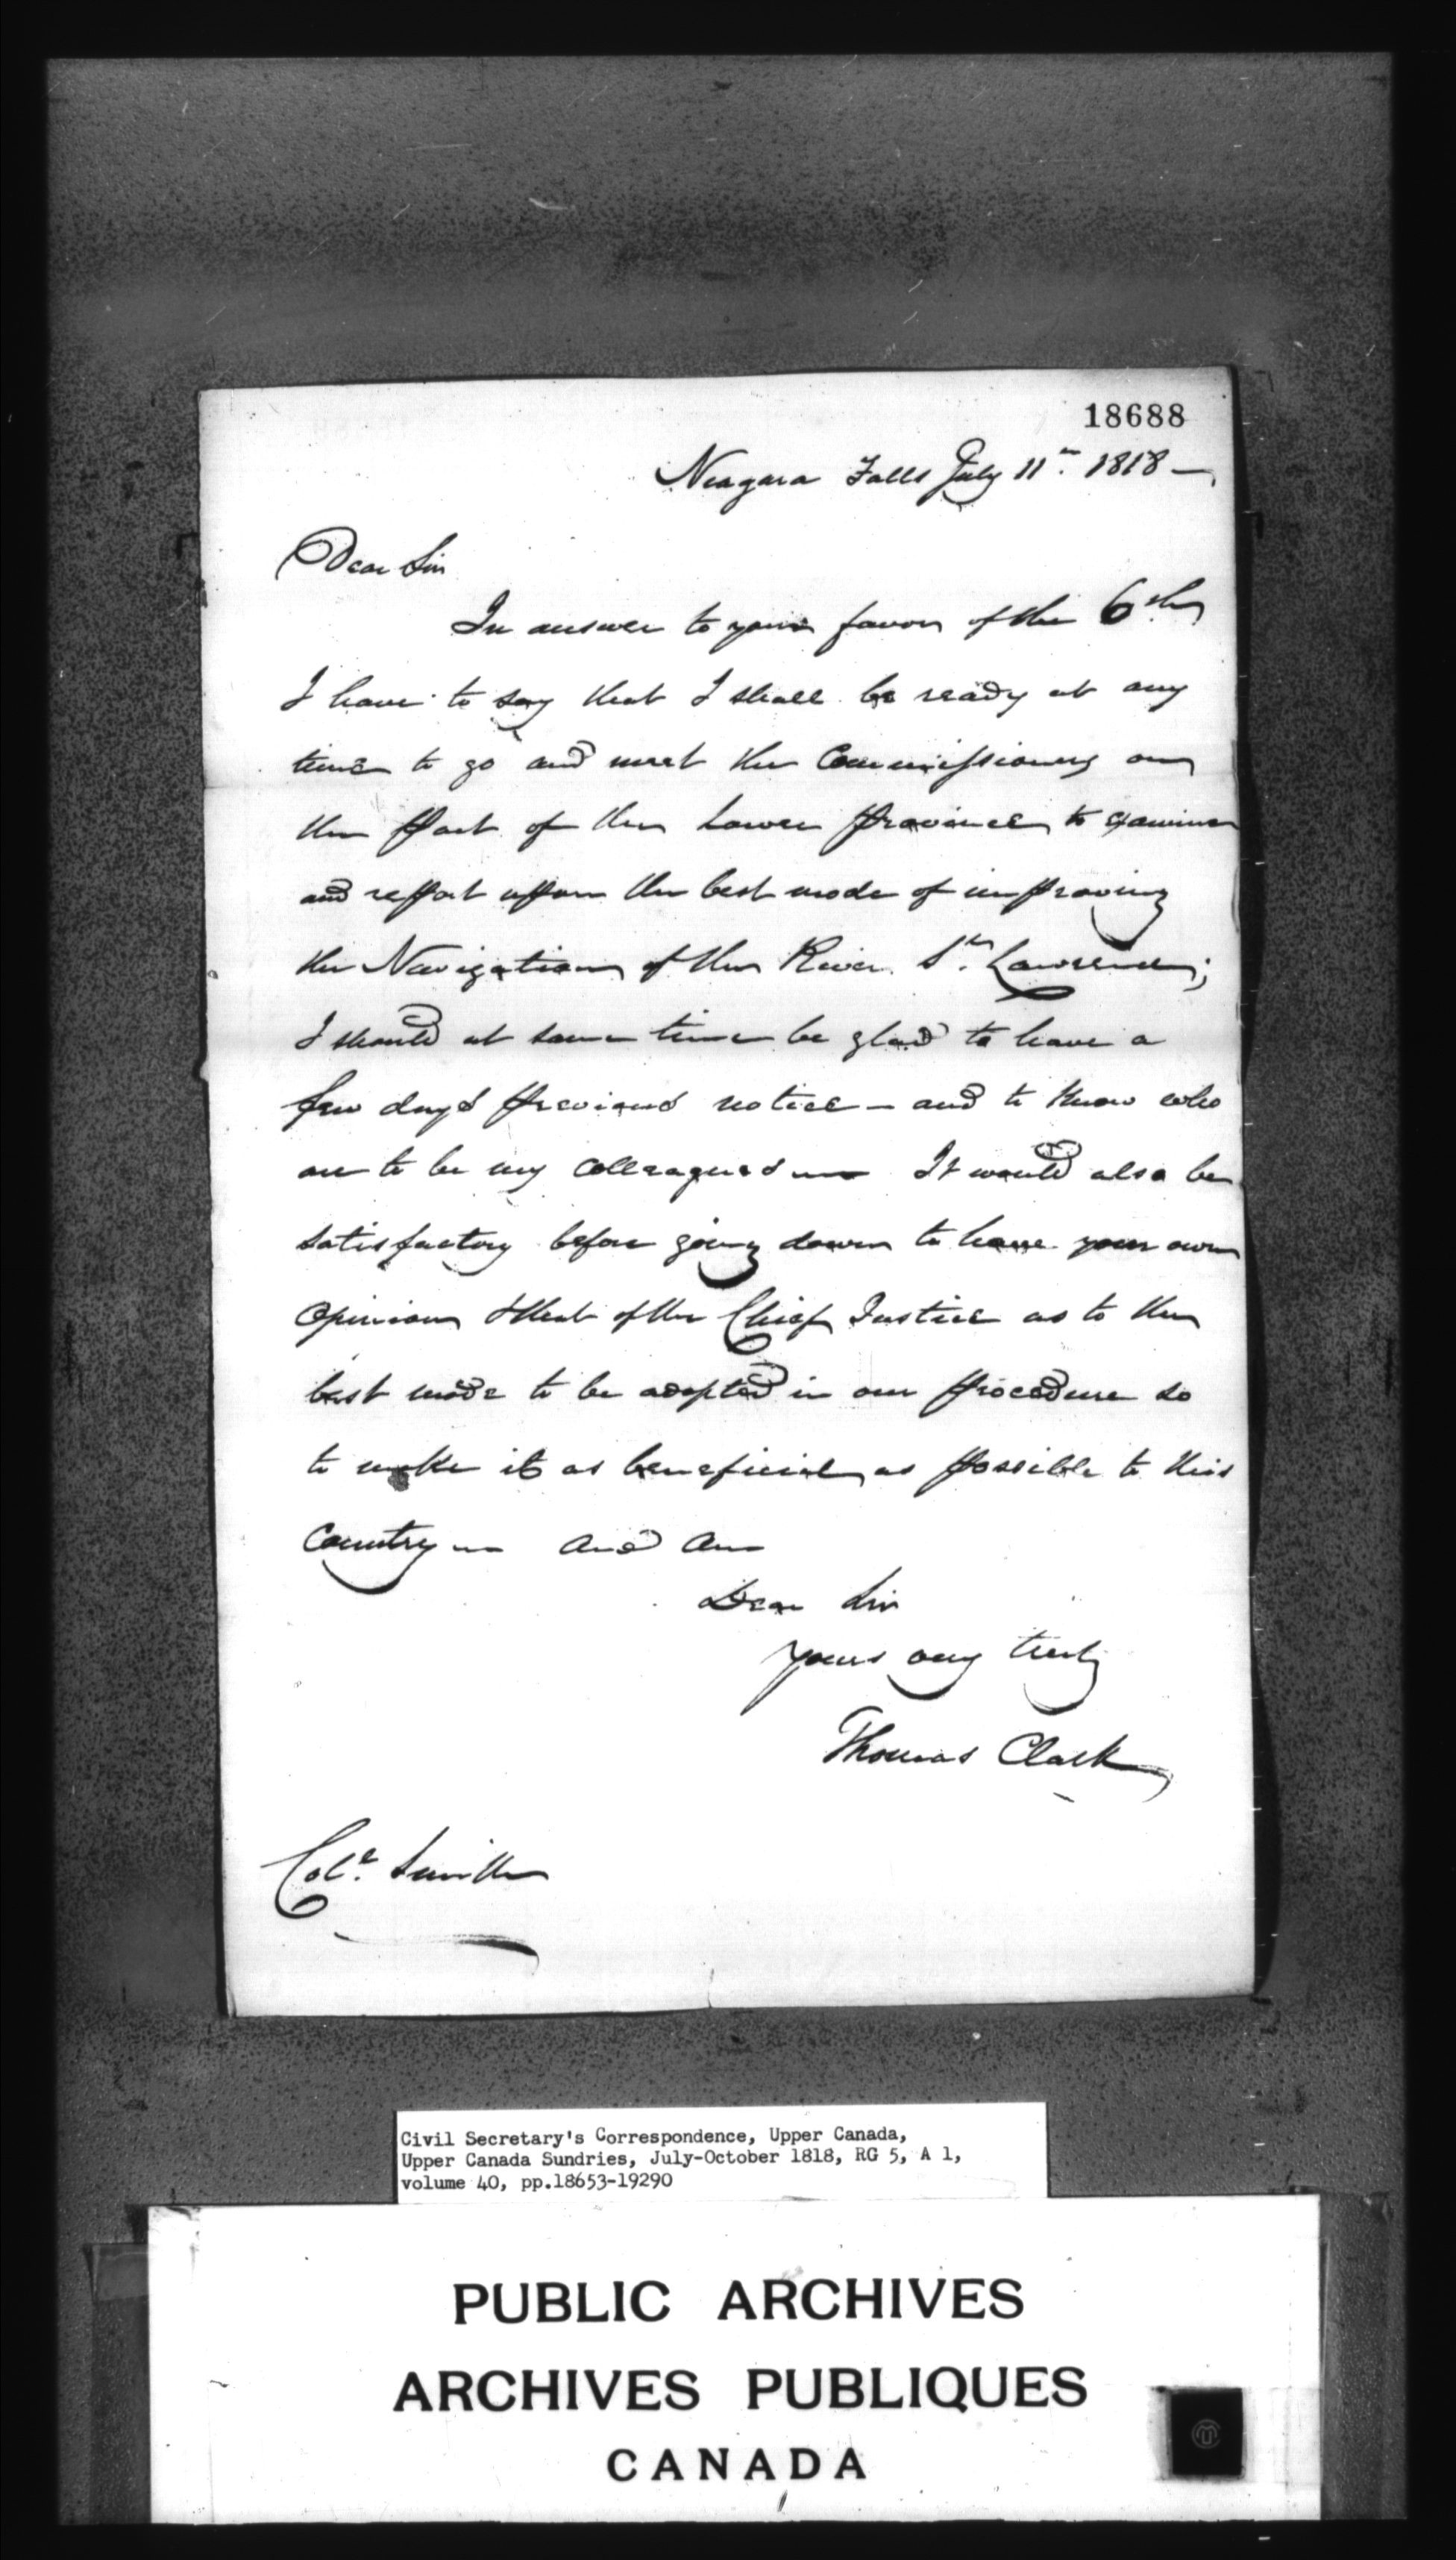 18688
Niagara Falls July 11th 1818 —
Dear Sir
In answer to your favor of the 6th
I have to say that I shall be ready at any
time to go and meet the Commissioners on
the Part of the Lower Province to examine
and report upon the best mode of improving
the Navigation of the River St. Lawrence;
I should at same time be glad to have a
few days previous notice — and to know who
are to be my colleagues — It would also be
satisfactory before going down to have your own
opinion & that of the Chief Justice as to the
best mode to be adopted in our procedure so
to make it as beneficial as possible to this
Country — and am
Dear Sir
yours very truly
Thomas Clark
Coll. Smith
Civil Secretary's Correspondence, Upper Canada,
Upper Canada Sundries, July-October 1818, RG 5, A 1,
volume 40, pp.18653-19290
PUBLIC ARCHIVES
ARCHIVES PUBLIQUES
CANADA